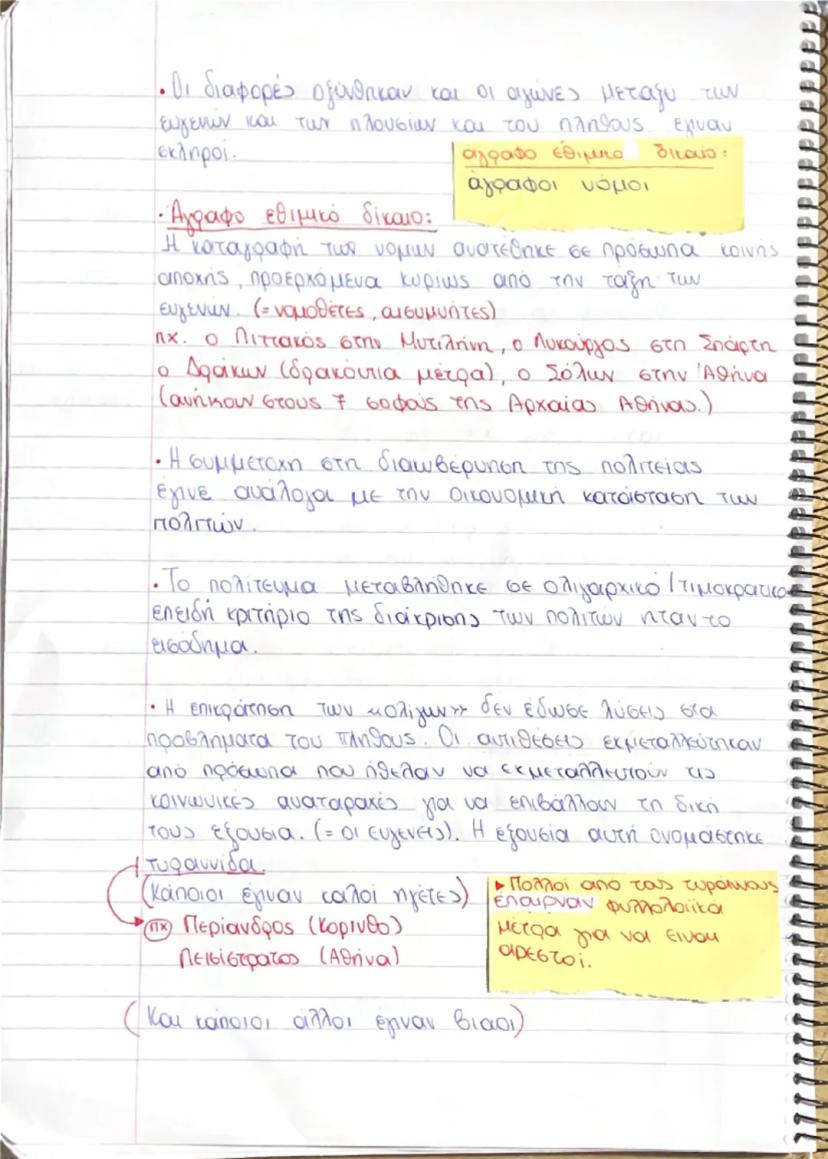 · Οι διαφορές οξύνθηκαν και οι αγώνες μεταξυ των
ευγενών και των πλουσίων και του πλήθους εγιναν
εκληροί.
άγραφο εθιμικό δικαιο:
άγραφοι νόμοι
· Άγραφο εθιμικό δίκαιο:
Η καταγραφή των νομων ανατέθηκε σε πρόσωπα κοινής
αποχής, προερχόμενα κυρίως από την ταξη των
ευγενών. (= νομοθέτες, αισυμνήτες)
πχ. ο Πιττακός στην Μυτιλήνη, ο Λυκούργος στη Σπάρτη
ο Δράκων (δρακόντια μέτρα), ο Σόλων στην Αθήνα
(ανήκουν στους 7 σοφούς της Αρχαίας Αθήνας.)
· Η συμμετοχή στη διακυβέρνηση της πολιτείας
έγινε ανάλογα με την οικονομική κατάσταση των
πολιτών.
· Το πολίτευμα μεταβλήθηκε σε ολιγαρχικό / τιμοκρατικο
επειδή κριτήριο της διάκρισης των πολιτών ηταν το
εισόδημα.
· Η επικράτηση των «ολίγων» δεν έδωσε λύσεις στα
προβλήματα του πλήθους. Οι αντιθέσεις εκμεταλλεύτηκαν
από πρόσωπα που ήθελαν να εκμεταλλευτούν τις
κοινωνικές αναταραχές για να επιβάλλουν τη δική
τους εξουσια. (= οι ευγενεις). Η εξουσία αυτή ονομάστηκε
τυραννίδα
(Κάποιοι έγιναν καλοί ηγέτες)
πχ Περίανδρος (Κορινθο)
Πεισίστρατος (Αθήνα)
▸ Πολλοί από τους τυράννους
έπαιρναν φιλολαϊκά
μέτρα για να ειναι
αρεστοί.
(Και κάποιοι άλλοι έγιναν βιαοι)